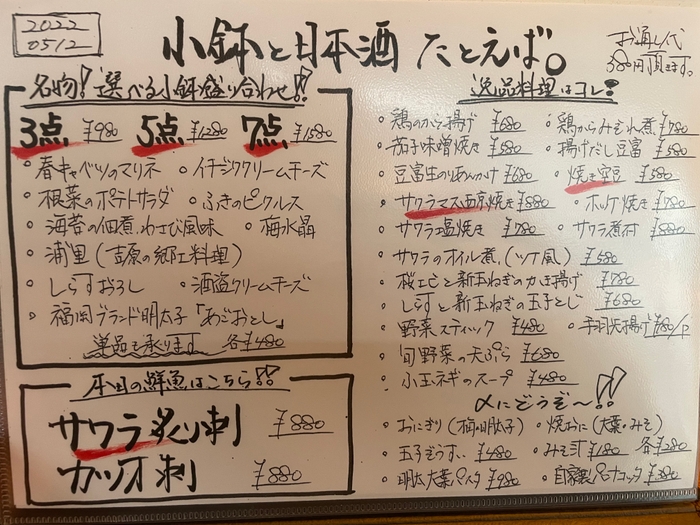 2022
0512
小鉢と日本酒 たとえば。
お通し代
380円頂きます。
名物!選べる小鉢盛り合わせ!!
3点 ¥980 5点 ¥1280 7点 ¥1580
・春キャベツのマリネ ・イチジククリームチーズ
・根菜のポテトサラダ ・ふきのピクルス
・海苔の佃煮、わさび風味 ・梅水晶
・浦里(吉原の郷土料理)
・しらすおろし ・酒盗クリームチーズ
・福岡ブランド明太子「あごおとし」
単品も承ります 各¥480
本日の鮮魚はこちら!!
サワラ炙り刺 ¥880
カツオ刺 ¥880
逸品料理はコレ!
・鶏のから揚げ ¥680 ・鶏からみぞれ煮 ¥780
・茄子味噌焼き ¥580 ・揚げだし豆富 ¥580
・豆富生のりあんかけ ¥680 ・焼き空豆 ¥580
・サクラマス西京焼き ¥880 ・ホッケ焼き ¥780
・サワラ塩焼き ¥780 ・サワラ煮付 ¥880
・サワラのオイル煮、(ツナ風) ¥580
・桜エビと新玉ねぎのかき揚げ ¥780
・しらすと新玉ねぎの玉子とじ ¥680
・野菜スティック ¥480 ・手羽先揚げ ¥180/P
・旬野菜の天ぷら ¥680
・小玉ネギのスープ ¥480
〆にどうぞ〜!!
・おにぎり(梅・明太子) ・焼おに(大葉・みそ)
各¥280
・玉子ぞうすい ¥480 ・みそ汁 ¥180
・明太大葉パスタ ¥980 ・自家製パンナコッタ ¥380